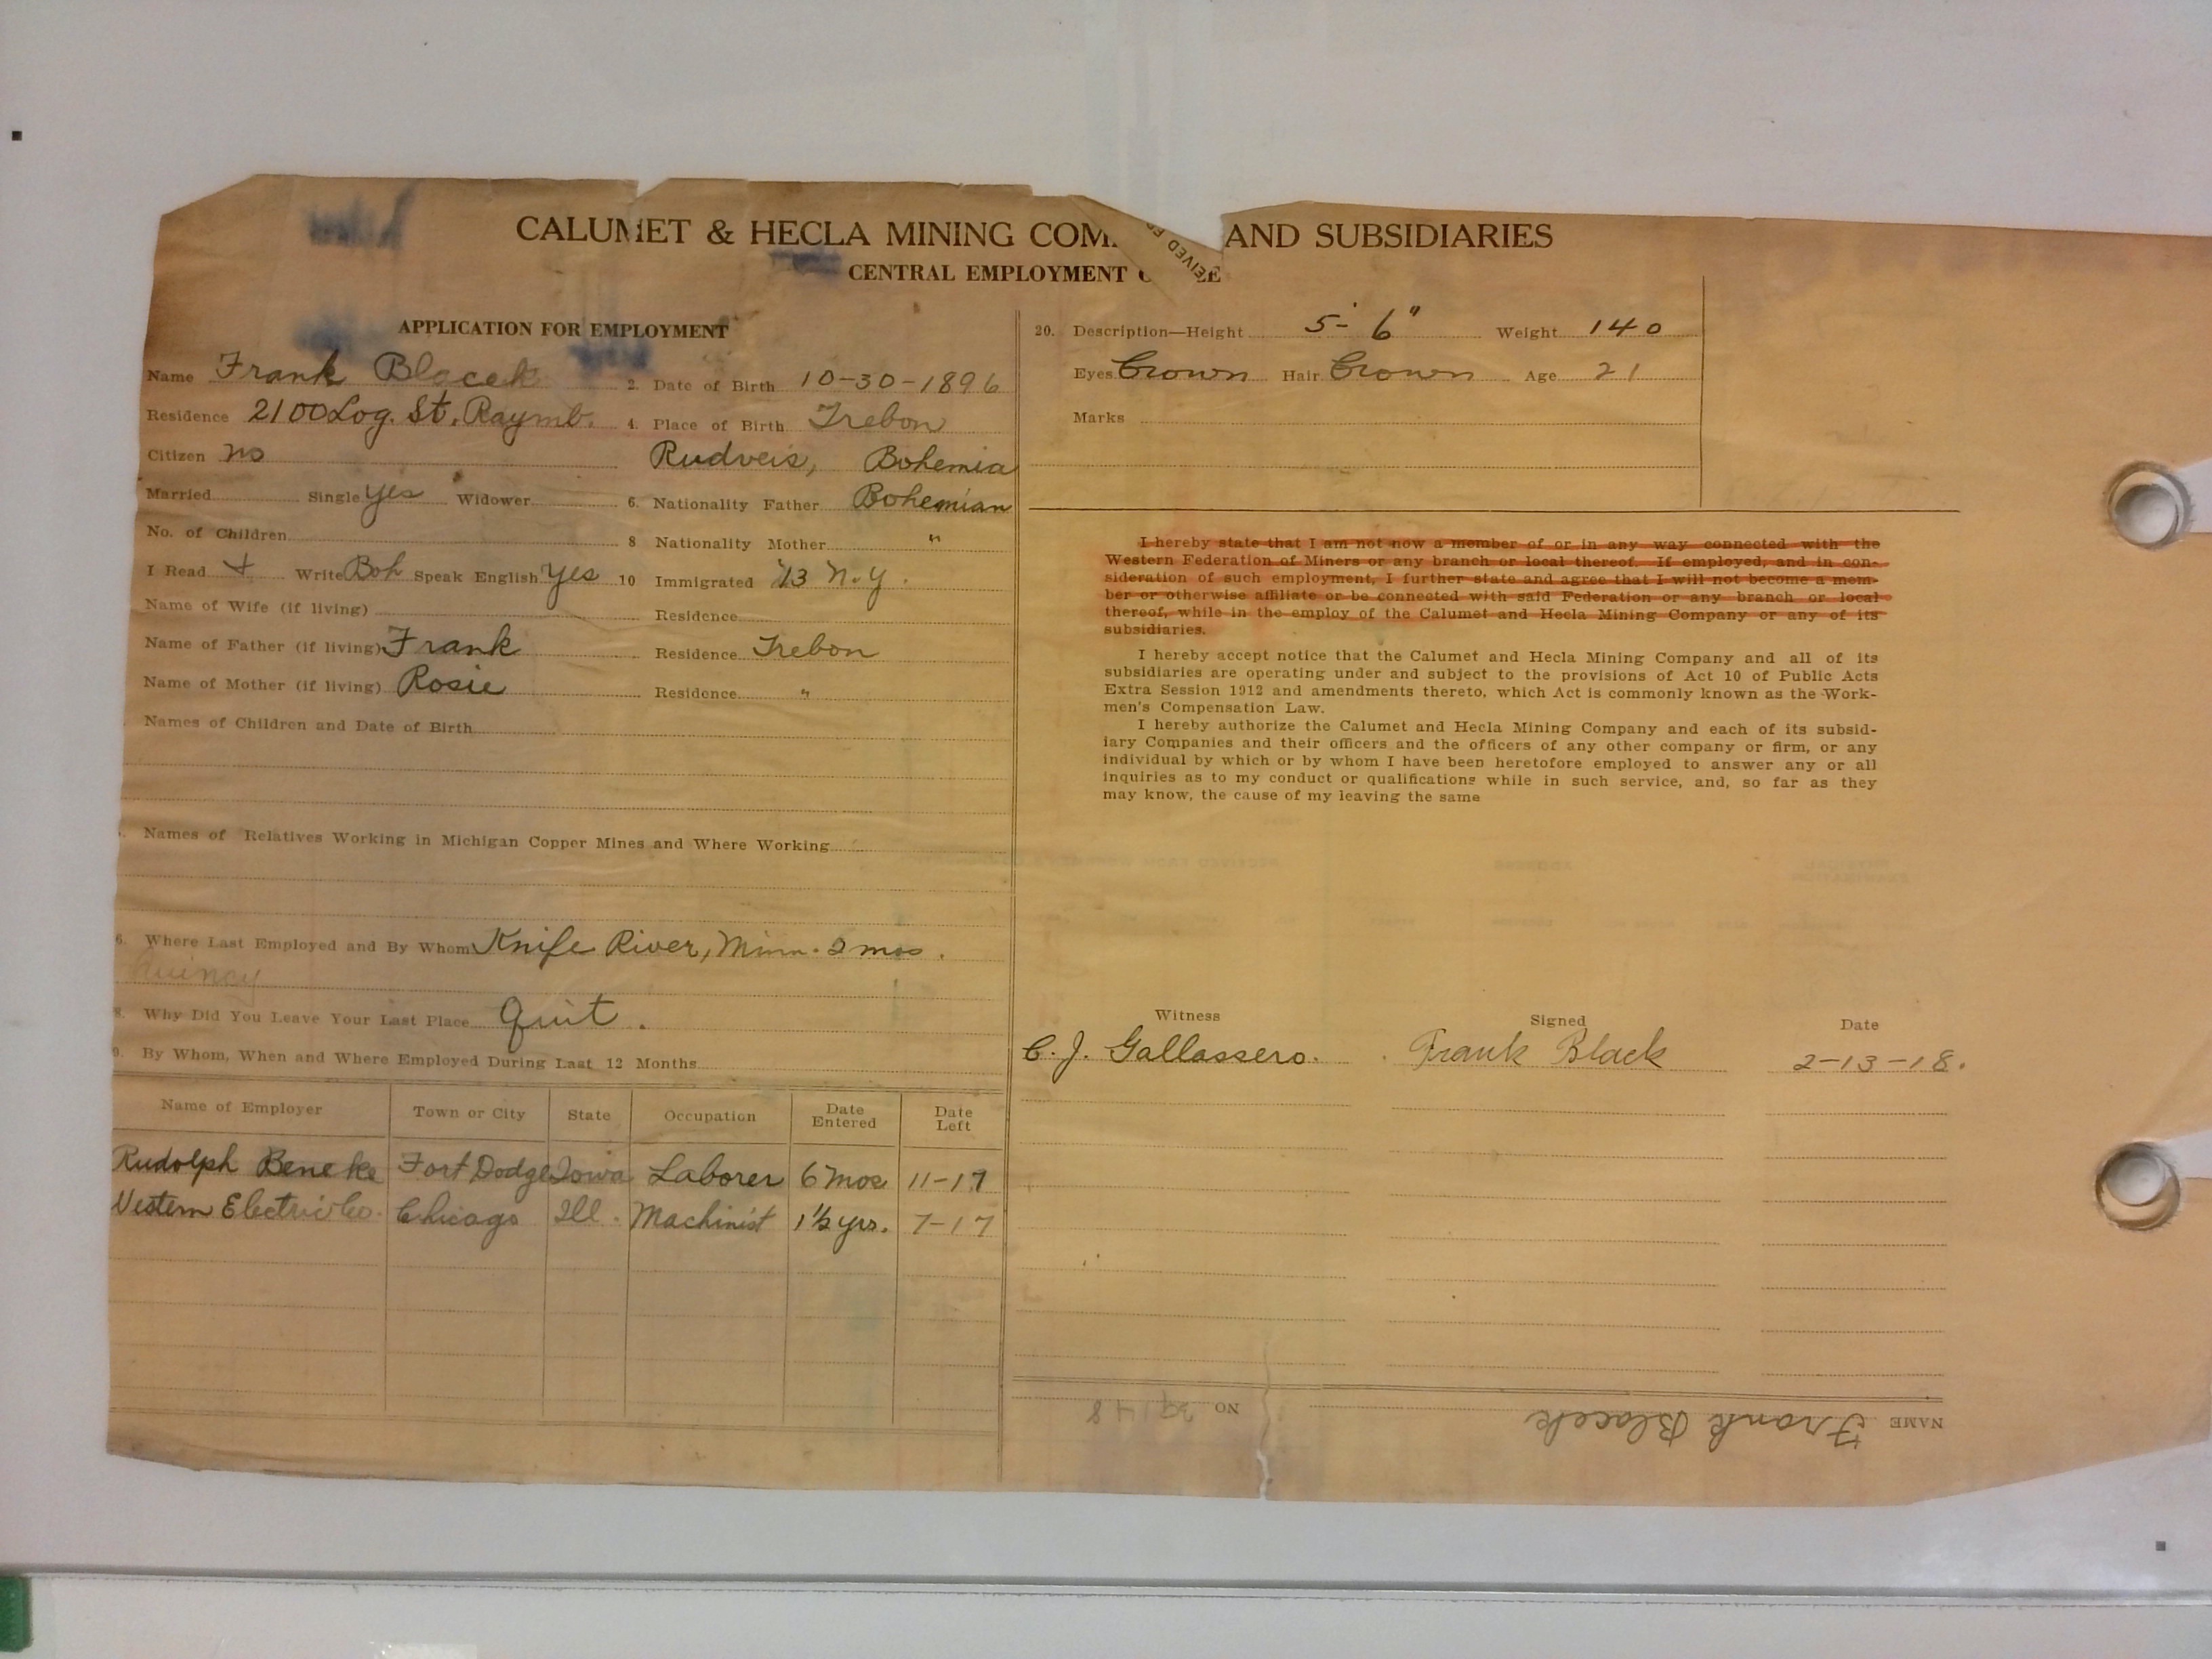 CALUMET & HECLA MINING COM AND SUBSIDIARIES
EIVED F
CENTRAL EMPLOYMENT
APPLICATION FOR EMPLOYMENT
Name Frank Blacek 2. Date of Birth 10-30-1896
Residence 2100 Log. St. Raymb. 4. Place of Birth Trebon
Citizen no Rudveis, Bohemia
Married Single yes Widower 6. Nationality Father Bohemian
No. of Children 8 Nationality Mother "
I Read + Write Boh Speak English yes 10 Immigrated '13 N.Y.
Name of Wife (if living) Residence
Name of Father (if living) Frank Residence Trebon
Name of Mother (if living) Rosie Residence "
Names of Children and Date of Birth
Names of Relatives Working in Michigan Copper Mines and Where Working
6. Where Last Employed and By Whom Knife River, Minn. 2 mos.
Quincy
8. Why Did You Leave Your Last Place Quit.
9. By Whom, When and Where Employed During Last 12 Months
Name of Employer Town or City State Occupation Date Entered Date Left
Rudolph Beneke Fort Dodge Iowa Laborer 6 mos 11-17
Western Electric Co. Chicago Ill. Machinist 1 1/2 yrs. 7-17
20. Description—Height 5' 6" Weight 140
Eyes Brown Hair Brown Age 21
Marks
I hereby state that I am not now a member of or in any way connected with the
Western Federation of Miners or any branch or local thereof. If employed, and in con-
sideration of such employment, I further state and agree that I will not become a mem-
ber or otherwise affiliate or be connected with said Federation or any branch or local
thereof, while in the employ of the Calumet and Hecla Mining Company or any of its
subsidiaries.
I hereby accept notice that the Calumet and Hecla Mining Company and all of its
subsidiaries are operating under and subject to the provisions of Act 10 of Public Acts
Extra Session 1912 and amendments thereto, which Act is commonly known as the Work-
men's Compensation Law.
I hereby authorize the Calumet and Hecla Mining Company and each of its subsid-
iary Companies and their officers and the officers of any other company or firm, or any
individual by which or by whom I have been heretofore employed to answer any or all
inquiries as to my conduct or qualifications while in such service, and, so far as they
may know, the cause of my leaving the same
Witness Signed Date
C. J. Gallassero. Frank Black 2-13-18.
NAME Frank Blacek NO 39148